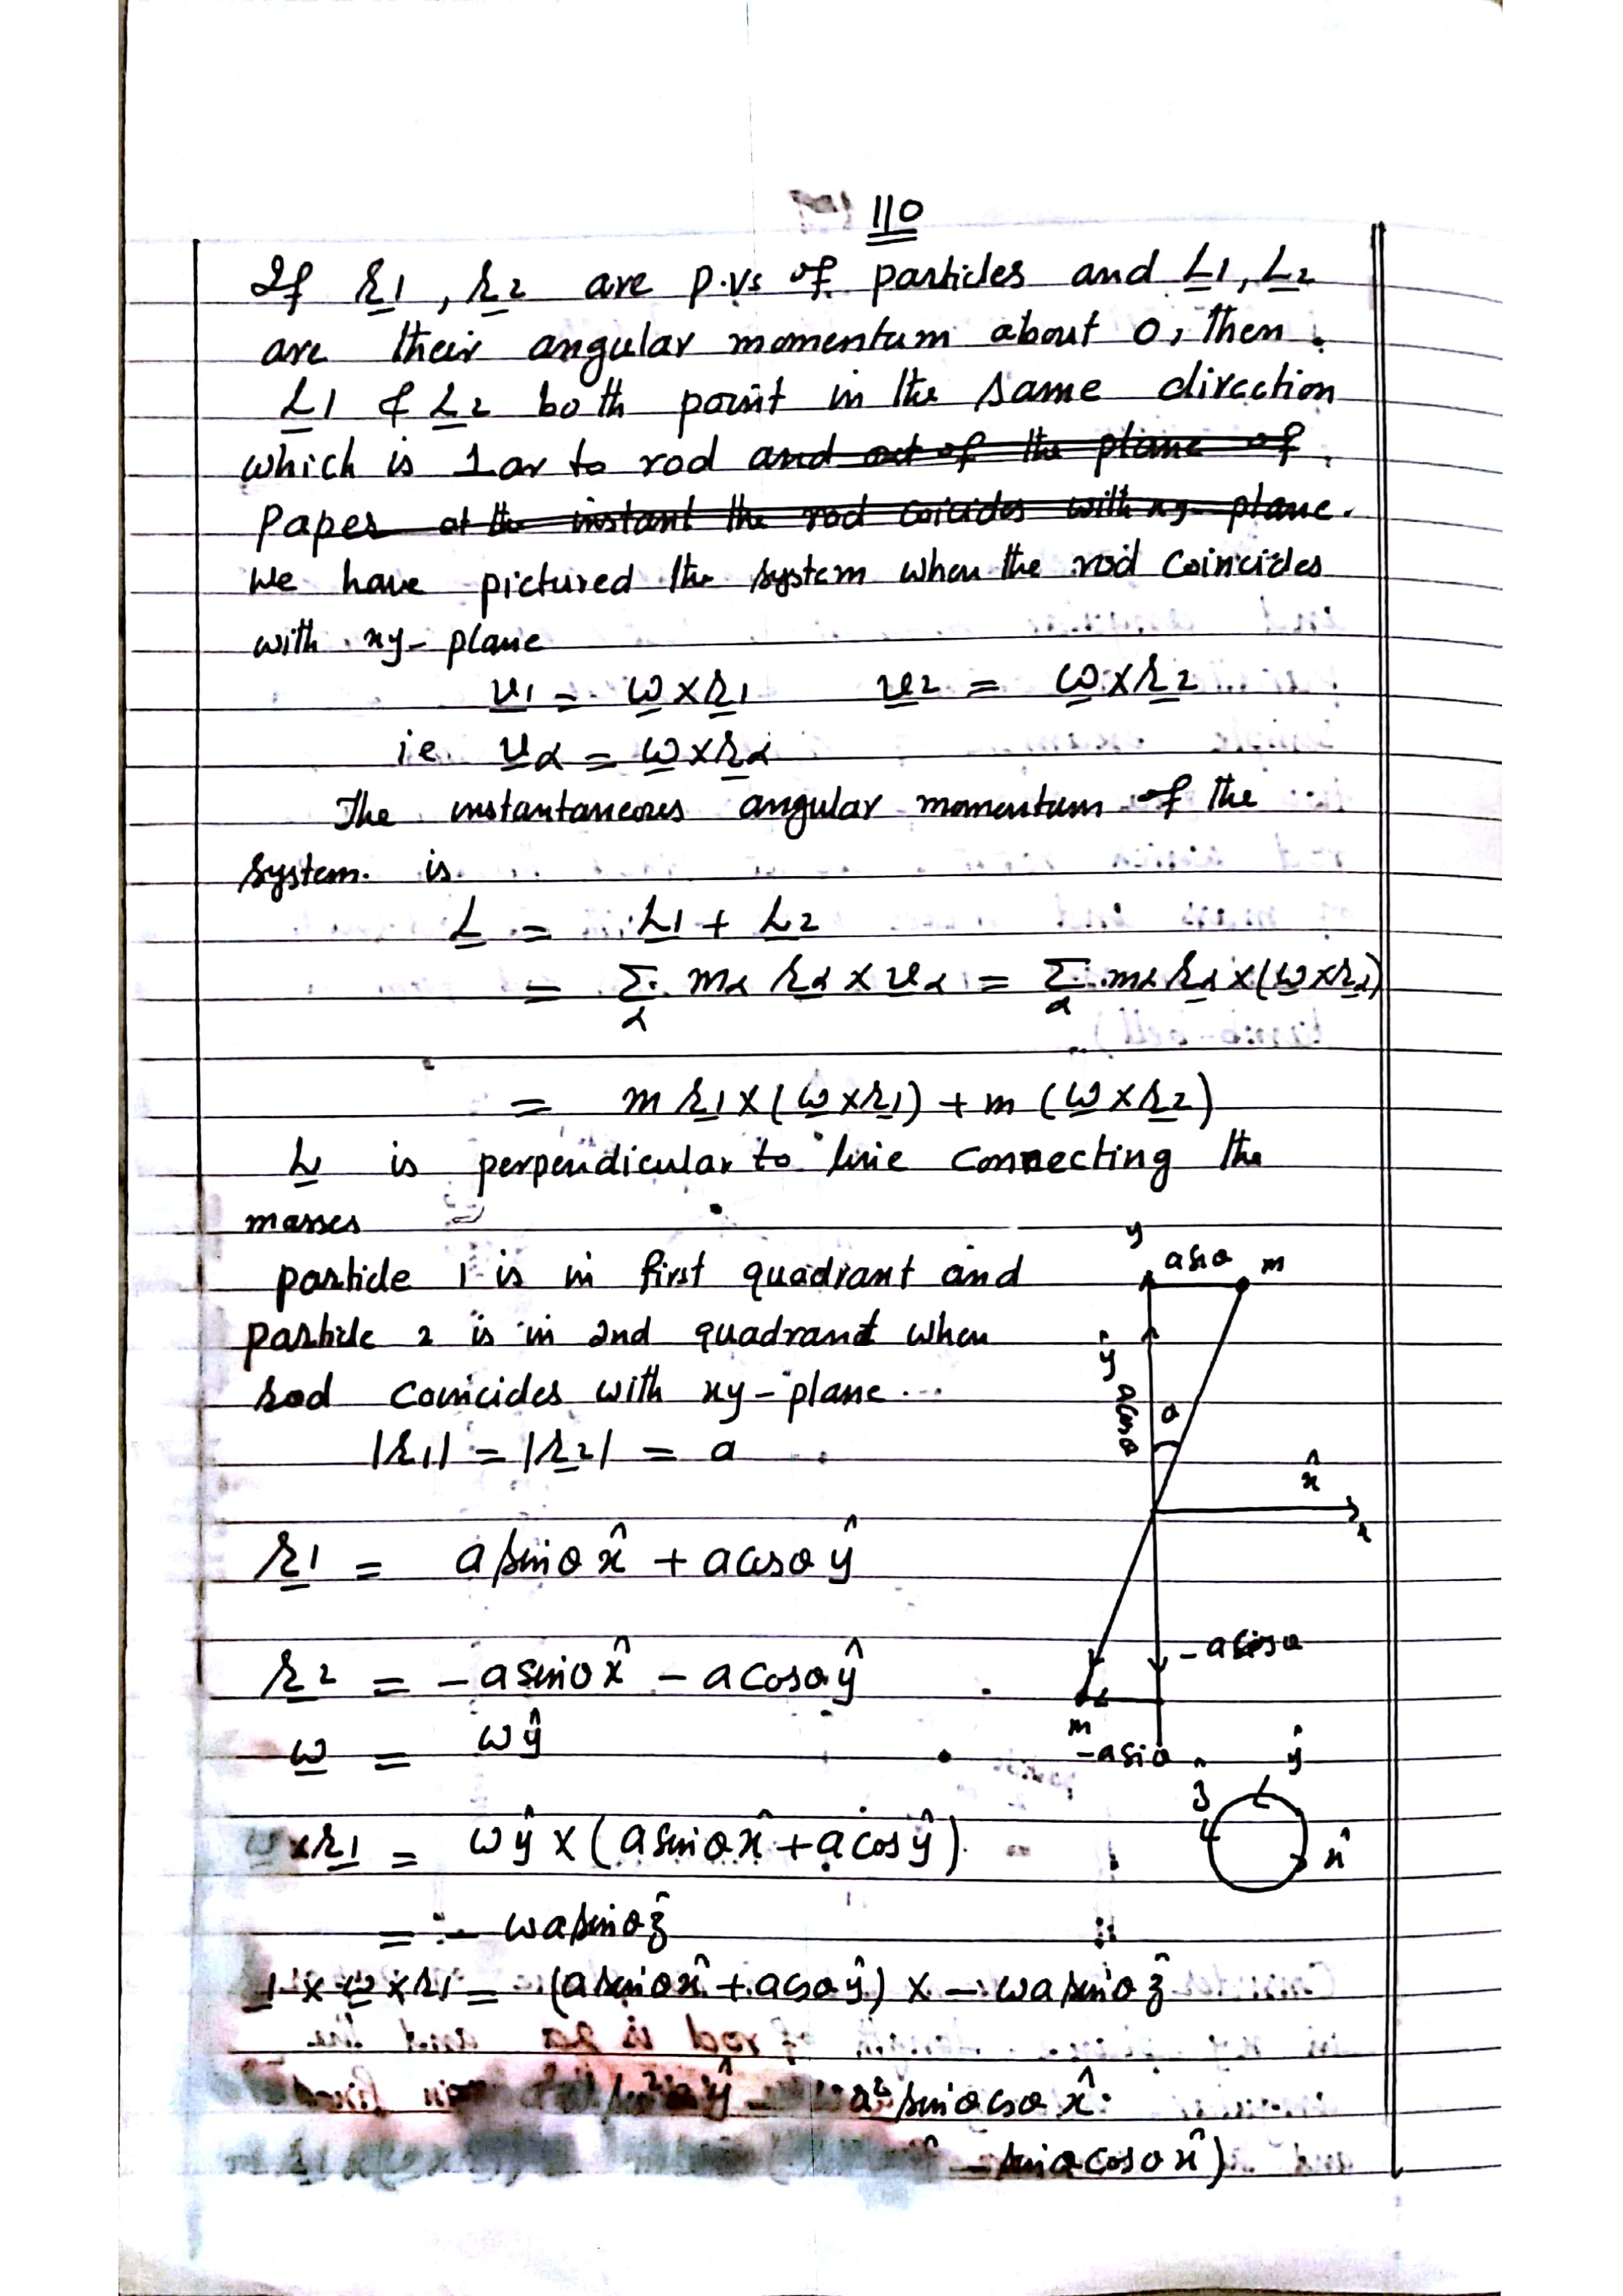 110
If r1, r2 are p.vs of particles and L1, L2
are their angular momentum about O, then.
L1 & L2 both point in the same direction
which is 1ar to rod and out of the plane of
Paper at the instant the rod coicides with xy-plane.
We have pictured the system when the rod coincides
with xy-plane
v1 = ω×r1 v2 = ω×r2
ie vα = ω×rα
The instantaneous angular momentum of the
system. is
L = L1 + L2
= Σα mα rα × vα = Σα mα rα×(ω×rα)
= m r1×(ω×r1) + m (ω×r2)
L is perpendicular to line connecting the
masses
particle 1 is in first quadrant and
particle 2 is in 2nd quadrant when
rod conicides with xy-plane...
|r1| = |r2| = a
r1 = a sinθ x̂ + a cosθ ŷ
r2 = -a sinθ x̂ - a cosθ ŷ
ω = ω ŷ
ω×r1 = ωŷ × (a sinθ x̂ + a cos ŷ)
= - ωa sinθ ẑ
1 × ω×r1 = (a sinθ x̂ + a cosθ ŷ) × - ωa sinθ ẑ
a² sinθ cosθ x̂
- sinθ cosθ x̂)
y
a sinθ m
ŷ
a cosθ
θ
x̂
x
-a cosθ
m
-a sinθ
ŷ
ẑ
x̂